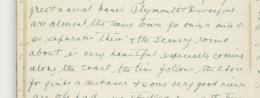 great naval base. Plymouth & Devonport
are almost the same town for only a mile or
so separates them & the scenery round
about is very beautiful especially coming
along the coast the line follows the shore
for quite a distance & some very good views
are